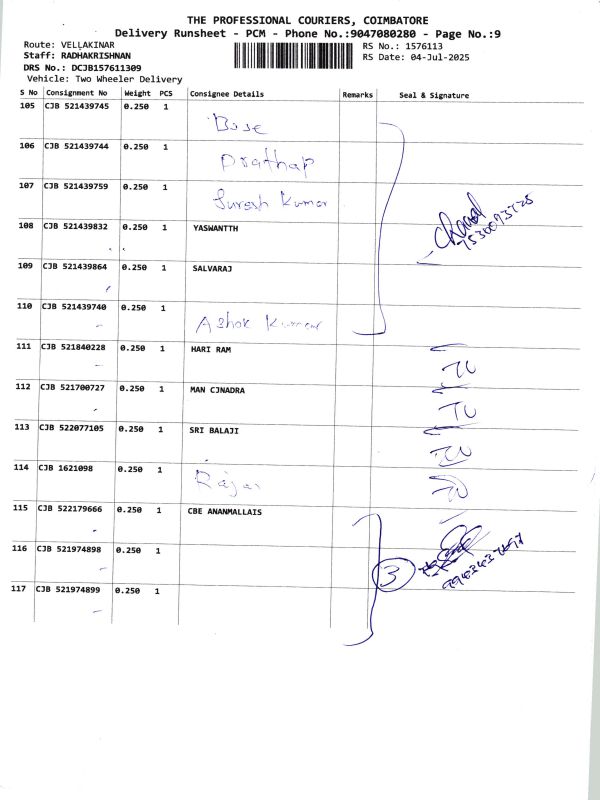 THE PROFESSIONAL COURIERS, COIMBATORE
Delivery Runsheet - PCM - Phone No.:9047080280 - Page No.:9
Route: VELLAKINAR
RS No.: 1576113
Staff: RADHAKRISHNAN
RS Date: 04-Jul-2025
DRS No.: DCJB157611309
Vehicle: Two Wheeler Delivery
S No Consignment No Weight PCS Consignee Details Remarks Seal & Signature
105 CJB 521439745 0.250 1 Bose
106 CJB 521439744 0.250 1 Prathap
107 CJB 521439759 0.250 1 Suresh Kumar
108 CJB 521439832 0.250 1 YASWANTTH
109 CJB 521439864 0.250 1 SALVARAJ
110 CJB 521439740 0.250 1 Ashok Kumar
111 CJB 521840228 0.250 1 HARI RAM
112 CJB 521700727 0.250 1 MAN CJNADRA
113 CJB 522077105 0.250 1 SRI BALAJI
114 CJB 1621098 0.250 1 Rajan
115 CJB 522179666 0.250 1 CBE ANANMALLAIS
116 CJB 521974898 0.250 1
3
117 CJB 521974899 0.250 1